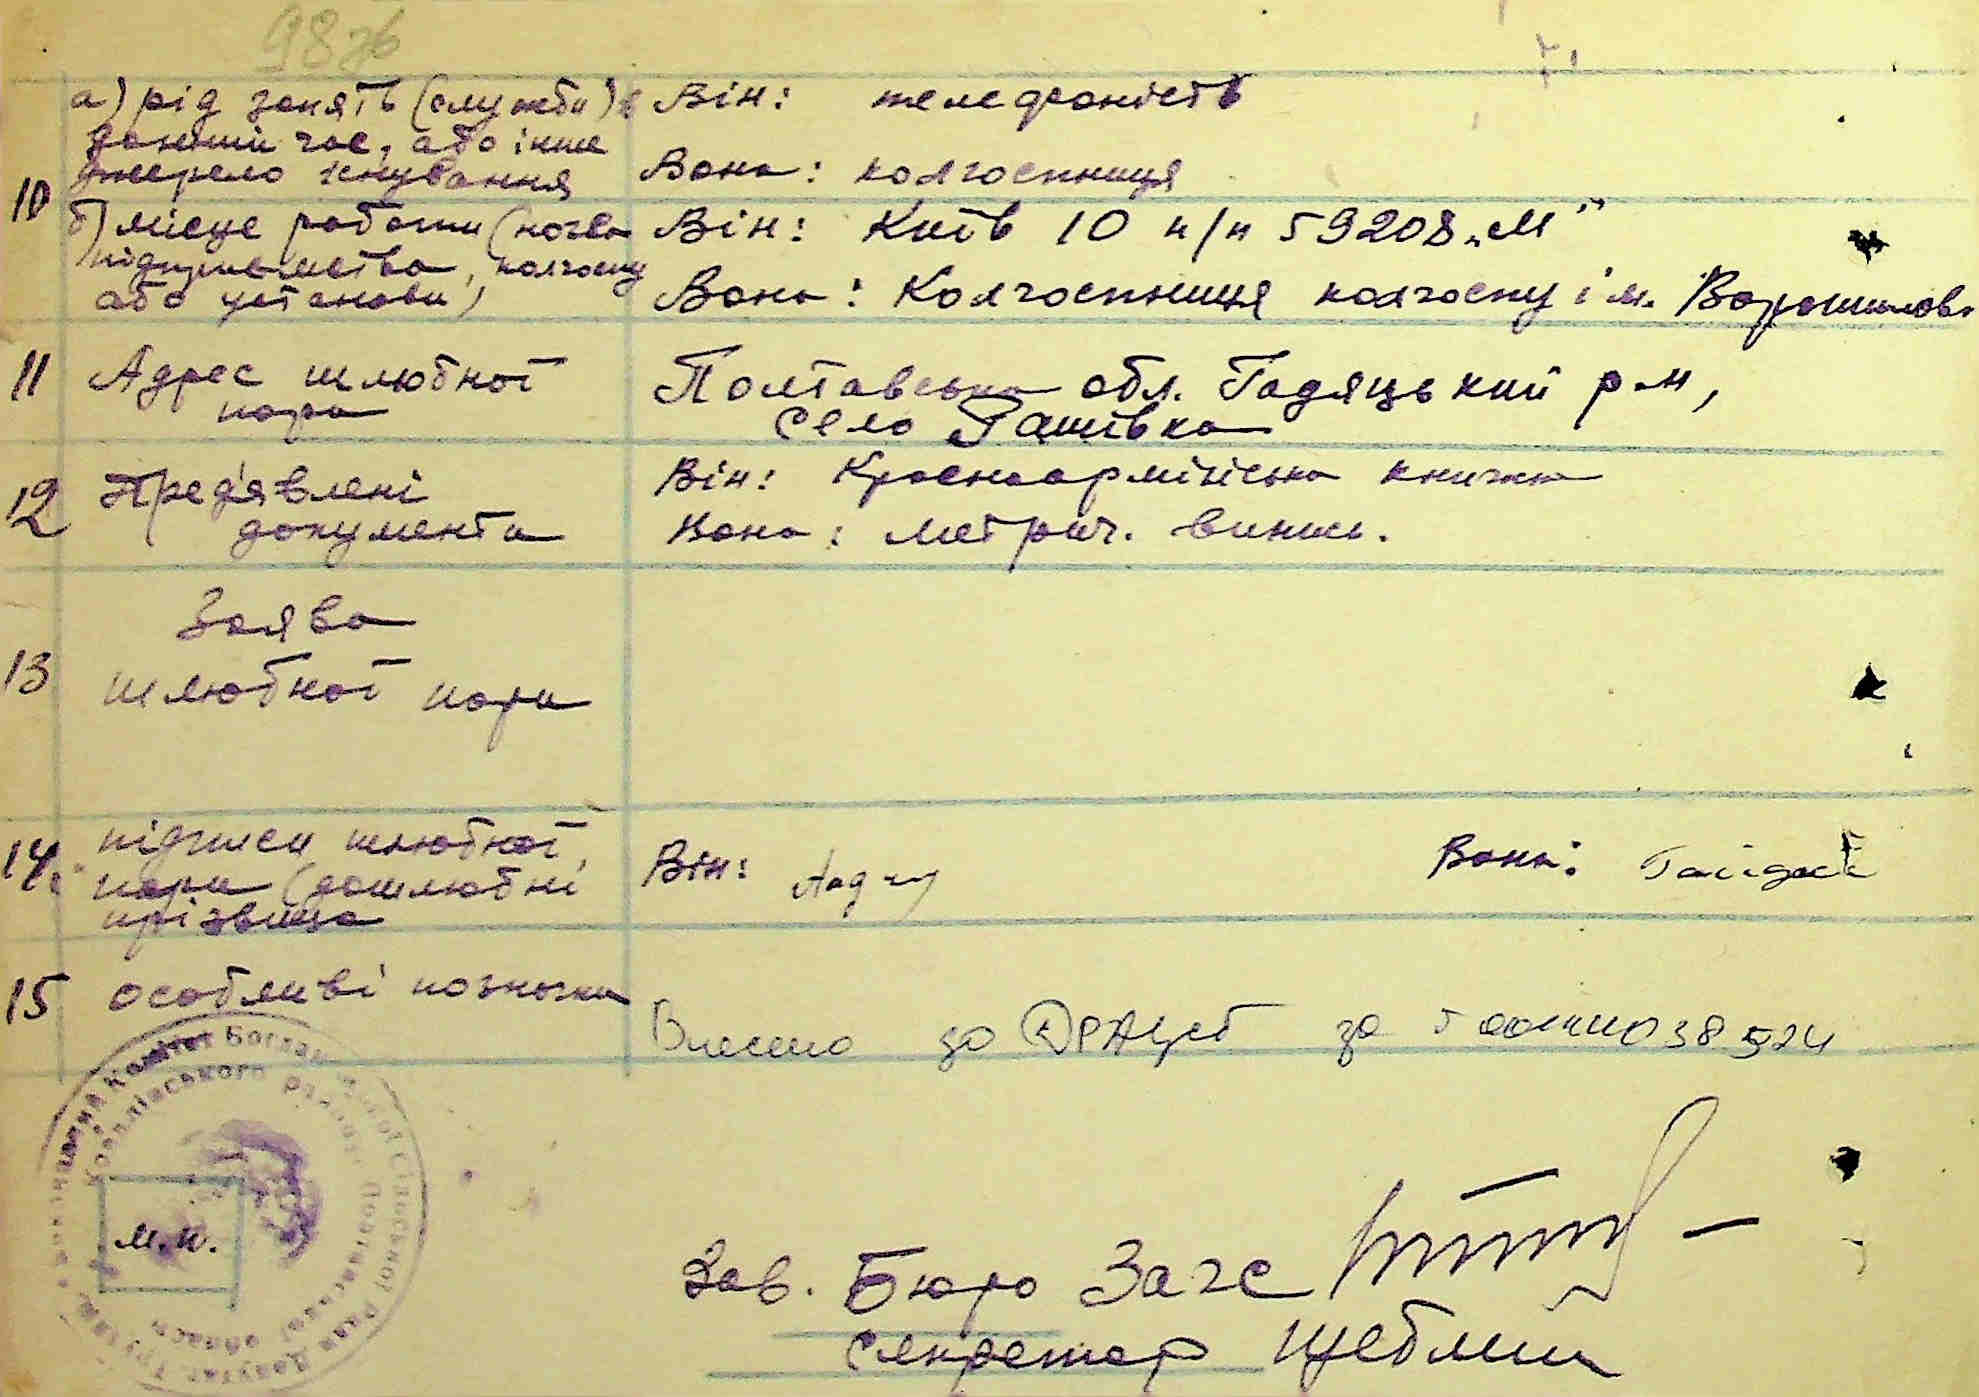 98зв
а) рід занять (служби) в
данний час, або інше
джерело існування
Він: телефоність
Вона: колгоспниця
10
б) місце работи (назва
підприємства, колгоспу
або установи)
Він: Київ 10 п/п 59208 „М"
Вона: Колгоспниця колгоспу ім. Ворошилова
11 Адрес шлюбної
пари
Полтавська обл. Гадяцький р-н,
село Рашівка
12 Пред'явлені
документи
Він: Красноармійська книжка
Вона: Метрич. випись.
13 Заява
шлюбної пари
14. підписи шлюбної
пари (дошлюбні
прізвища
Він:
Вона:
15 особливі позначки
Внесено до ДРАЦСГ за
Виконавчий Комітет
районy Полтавської області
м.п.
Зав. Бюро Загс
секретар Щеблий